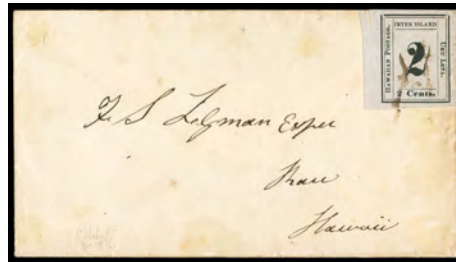 INTER ISLAND
HAWAIIAN POSTAGE.
UKU LETA.
2
2 Cents.
F. S. Lyman Esqre
Kau
Hawaii